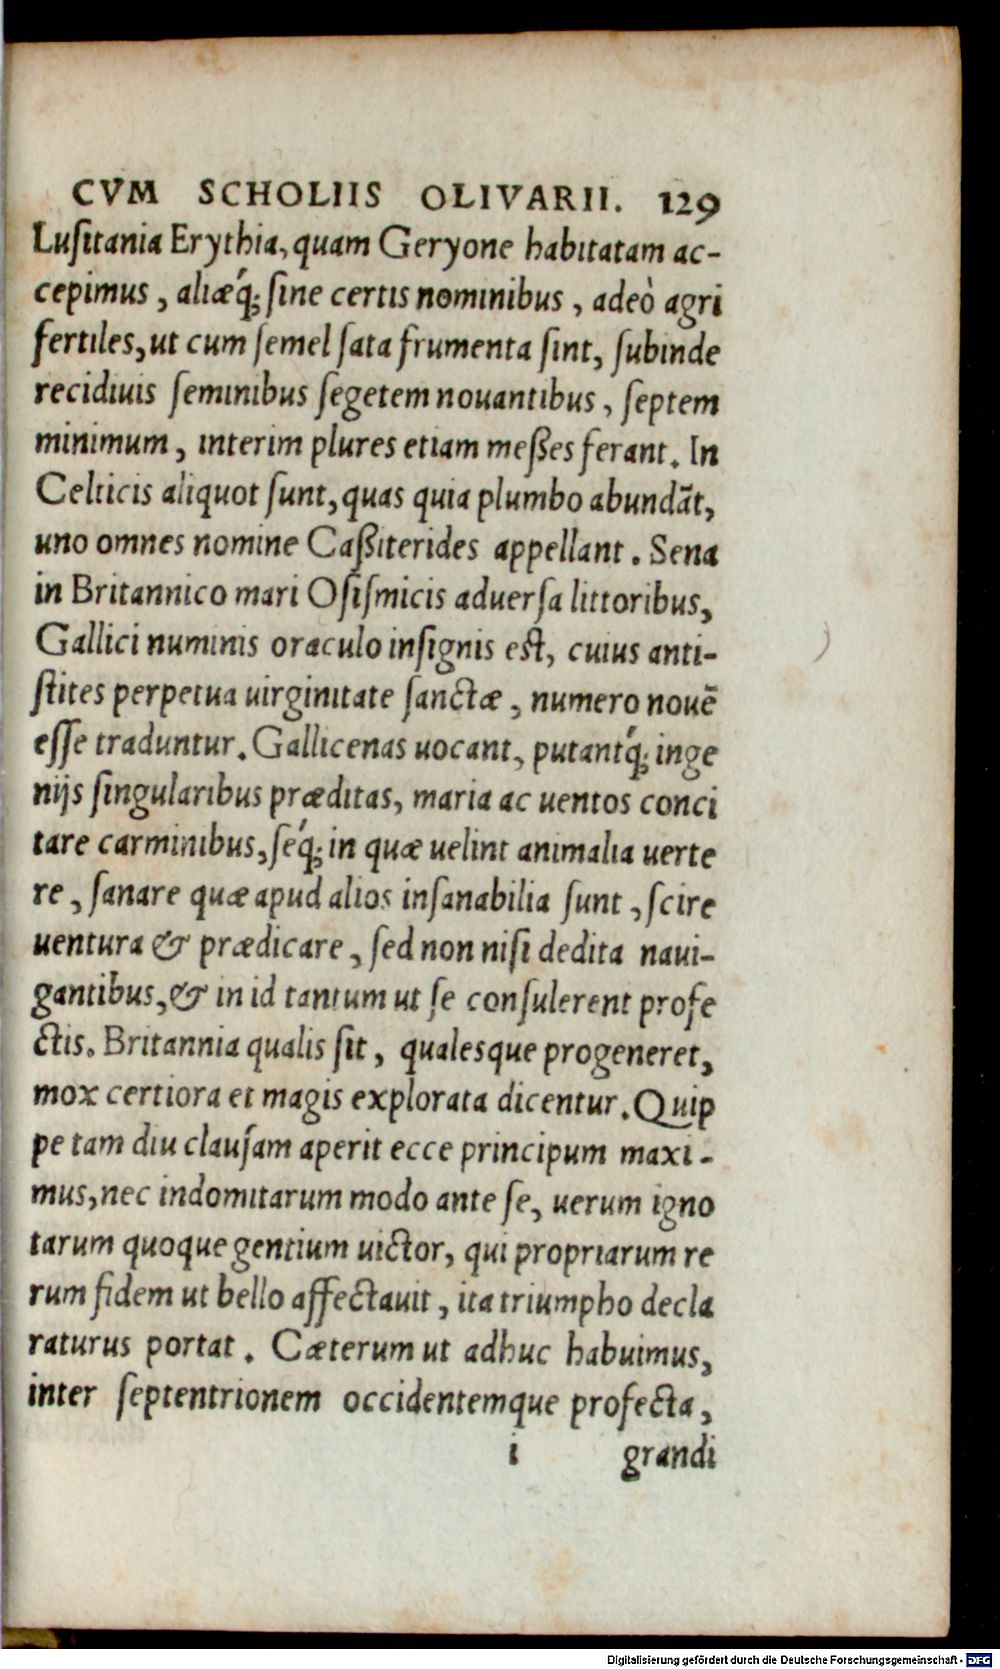 CVM SCHOLIIS OLIVARII. 129
Luſitania Erythia, quam Geryone habitatam ac-
cepimus, aliæq́; ſine certis nominibus, adeò agri
fertiles, ut cum ſemel ſata frumenta ſint, ſubinde
recidiuis ſeminibus ſegetem nouantibus, ſeptem
minimum, interim plures etiam meßes ferant. In
Celticis aliquot ſunt, quas quia plumbo abundãt,
uno omnes nomine Caßiterides appellant. Sena
in Britannico mari Oſiſmicis aduerſa littoribus,
Gallici numinis oraculo inſignis eſt, cuius anti-
ſtites perpetua uirginitate ſanctæ, numero nouē
eſſe traduntur. Gallicenas uocant, putantq́; inge
nijs ſingularibus præditas, maria ac uentos conci
tare carminibus, ſeq́; in quæ uelint animalia uerte
re, ſanare quæ apud alios inſanabilia ſunt, ſcire
uentura & prædicare, ſed non niſi dedita naui-
gantibus, & in id tantum ut ſe conſulerent profe
ctis. Britannia qualis ſit, qualesque progeneret,
mox certiora et magis explorata dicentur. Quip
pe tam diu clauſam aperit ecce principum maxi-
mus, nec indomitarum modo ante ſe, uerum igno
tarum quoque gentium uictor, qui propriarum re
rum fidem ut bello affectauit, ita triumpho decla
raturus portat. Cæterum ut adhuc habuimus,
inter ſeptentrionem occidentemque profecta,
i grandi
Digitalisierung gefördert durch die Deutsche Forschungsgemeinschaft - DFG